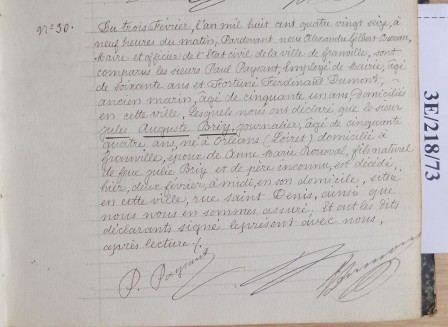 N° 30.
Du trois Février, l'an mil huit cent quatre vingt seize, à
neuf heures du matin, Pardevant nous Alexandre Gilbert
Maire et officier de l'Etat civil de la ville de Granville, sont
comparus les sieurs Paul Payeant, Employé de Mairie, âgé
de soixante ans et Fortuné Ferdinand Dumont,
ancien marin, âgé de cinquante un ans, domiciliés
en cette ville, lesquels nous ont déclaré que le sieur
Jules Auguste Briy, journalier, âgé de cinquante
quatre ans, né à Orléans (Loiret) domicilié à
Granville, époux de Anne Marie, fils naturel
de feue Julie Briy et de père inconnu, est décédé
hier, deux février, à midi, en son domicile, sité
en cette ville, rue saint Denis, ainsi que
nous nous en sommes assuré. Et ont les dits
déclarants signé le présent avec nous,
après lecture /.
P. Payeant
Dumont
3E/218/73